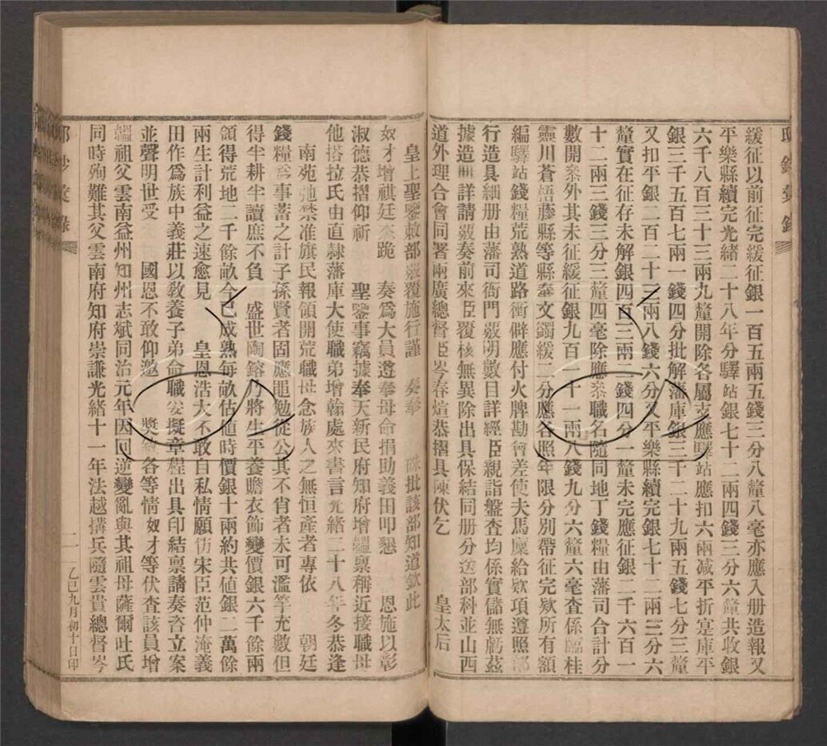 緩征以前征完緩征銀一百五兩五錢三分八釐八毫亦應入册造報又
平樂縣續完光緒二十八年分驛站銀七十二兩四錢三分六釐共收銀
六千八百三十三兩九釐開除各屬支應驛站應扣六兩減平折寔庫平
銀三千五百七兩一錢四分批解藩庫銀三千二十九兩五錢七分三釐
又扣平銀二百二十三兩八錢六分又平樂縣續完銀七十二兩三分六
釐實在征存未解銀四百三兩二錢四分一釐未完應征銀二千六百一
十二兩三錢三分三釐四毫除應叅職名隨同地丁錢糧由藩司合計分
數開叅外其未征緩征銀九百二十一兩八錢九分六釐六毫查係臨桂
靈川蒼梧藤縣等縣奉文蠲緩二分應各照年限分別帶征完欵所有額
編驛站錢糧荒熟道路衝僻應付火牌勘合差使夫馬廩給欵項遵照部
行造具細册由藩司衙門覈明數目詳經臣親詣盤查均係實儲無虧茲
據造册詳請覈奏前來臣覆核無異除出具保結同册分送部科並山西
道外理合會同署兩廣總督臣岑春煊恭摺具陳伏乞 皇太后
皇上聖鑒敕部覈覆施行謹 奏奉 硃批該部知道欽此
奴才增祺廷杰跪 奏爲大員遵奉母命捐助義田叩懇 恩施以彰
淑德恭摺仰祈 聖鑒事竊據奉天新民府知府增韞稟稱近接職母
他搭拉氏由直隸藩庫大使職弟增翰處來書言光緒二十八年冬恭逢
南苑弛禁准旗民報領開荒職母念族人之無恒產者專依 朝廷
錢糧爲事蓄之計子孫賢者固應黽勉從公其不肖者未可濫竽充數但
得半耕半讀庶不負 盛世陶鎔乃將生平養贍衣飾變價銀六千餘兩
領得荒地二千餘畝今已成熟每畝估随時價銀十兩約共値銀二萬餘
兩生計利益之速愈見 皇恩浩大不敢自私情願仿宋臣范仲淹義
田作爲族中義莊以敎養子弟命職妥擬章程出具印結禀請奏咨立案
並聲明世受 國恩不敢仰邀 奬叙各等情奴才等伏查該員增
韞祖父雲南益州知州志斌同治元年因回逆變亂與其祖母薩爾吐氏
同時殉難其父雲南府知府崇謙光緒十一年法越搆兵隨雲貴總督岑
二 乙巳九月初十日印